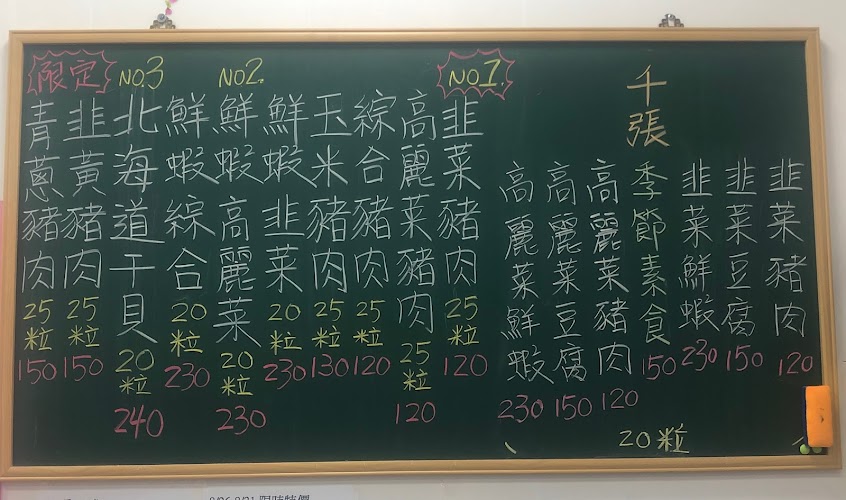 NO.1
韭菜豬肉 25粒 120
高麗菜豬肉 25粒 120
綜合豬肉 25粒 120
玉米豬肉 25粒 130
鮮蝦韭菜 20粒 230
NO2.
鮮蝦高麗菜 20粒 230
鮮蝦綜合 20粒 230
NO.3
北海道干貝 20粒 240
限定
韭黃豬肉 25粒 150
青蔥豬肉 25粒 150
千張
韭菜豬肉 120
韭菜豆腐 150
韭菜鮮蝦 230
季節素食 150
高麗菜豬肉 120
高麗菜豆腐 150
高麗菜鮮蝦 230
20粒